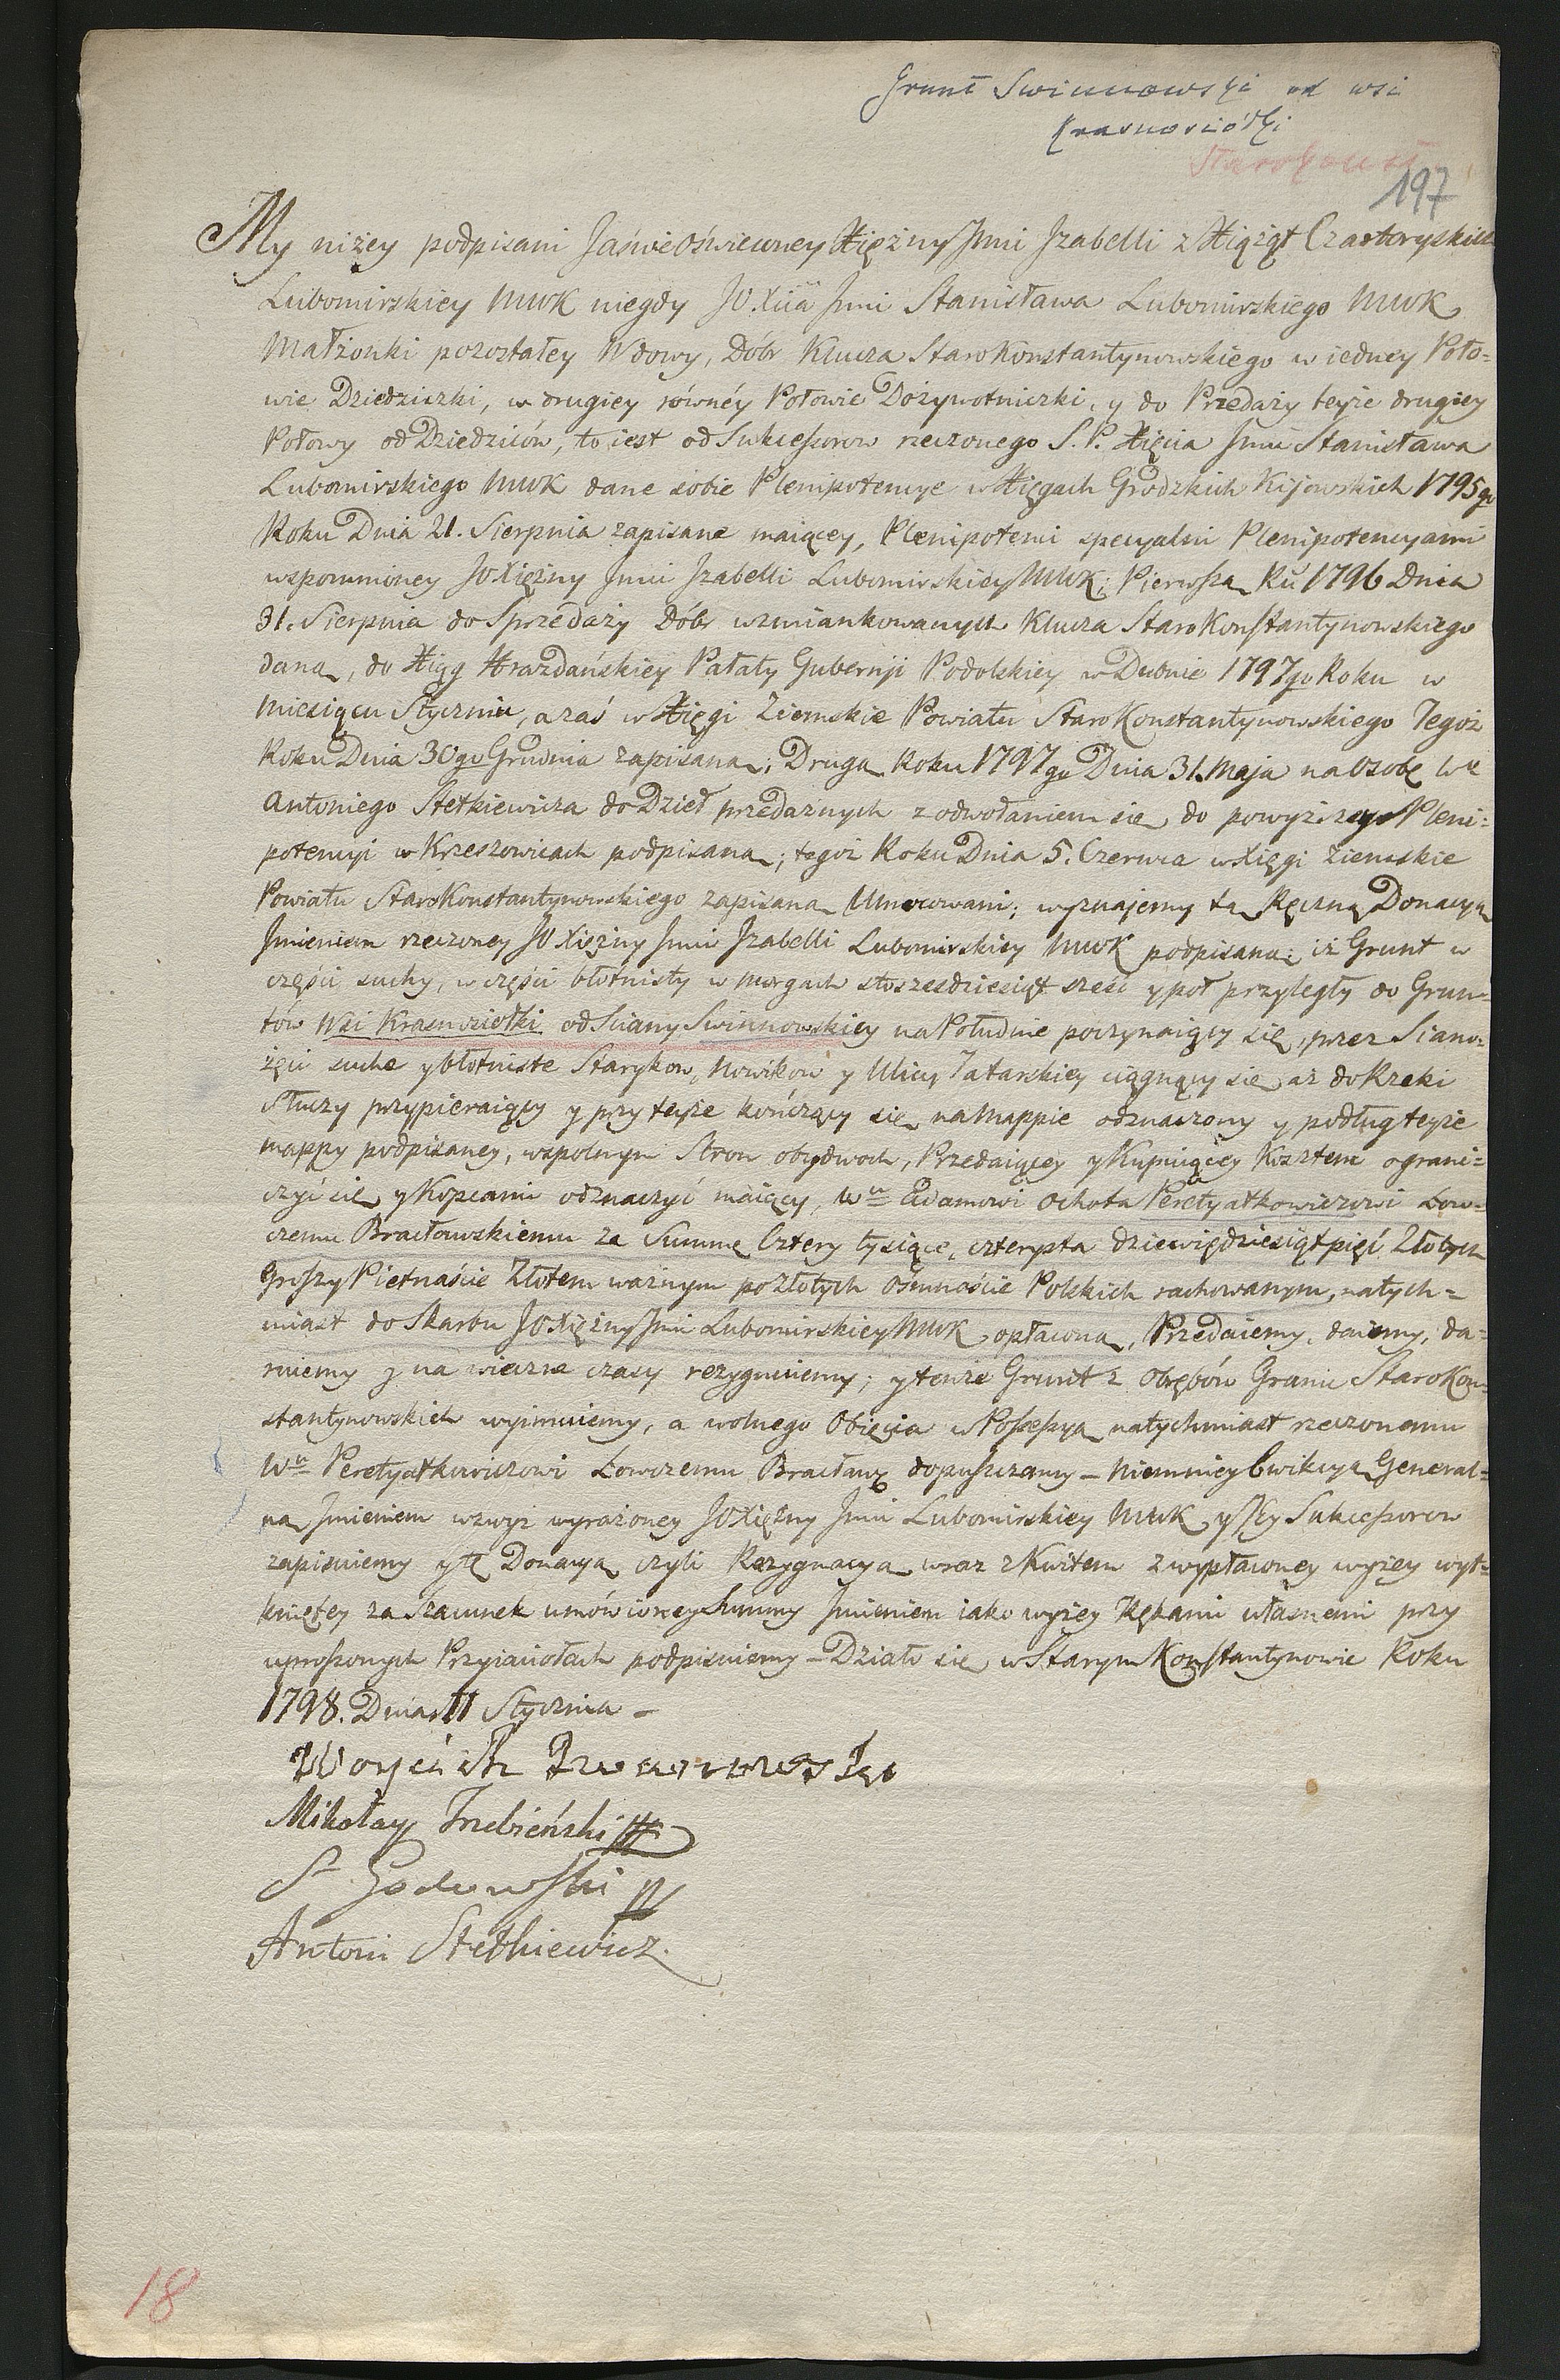 Grunt Swinnowski od wsi
Krasnosiółki
Starokonst
197
My niżey podpisani Jaśnie Oświeconey Xiężny Jmci Izabelli z Xiążąt Czartoryskich
Lubomirskiey MWK niegdy JO. Xcia Jmci Stanisława Lubomirskiego MWK
Małżonki pozostałey Wdowy, Dóbr Klucza StaroKonstantynowskiego w iedney Poło=
wie Dziedziczki, w drugiey równéy Połowie Dożywotniczki, y do Przedaży teyże drugiey
Połowy od Dziedziców, to iest od Sukcessorow rzeczonego S. P. Xięcia Jmci Stanisława
Lubomirskiego MWK dane sobie Plenipotencye w Xięgach Grodzkich Kijowskich 1795go
Roku Dnia 21. Sierpnia zapisane maiącey, Plenipotenci specyalni Plenipotencyami
wspomnioney JO Xiężny Jmci Izabelli Lubomirskiey MWK; Pierwszą Ru 1796 Dnia
31. Sierpnia do Sprzedaży Dóbr wzmiankowanych Klucza StaroKonstantynowskiego
daną, do Xiąg Hrazdańskiey Pałaty Gubernji Podolskiey w Dubnie 1797go Roku w
Miesiącu Styczniu, a zaś w Xięgi Ziemskie Powiatu StaroKonstantynowskiego Tegoż
Roku Dnia 30go Grudnia zapisaną; Drugą Roku 1797go Dnia 31. Maja na Osobę Wo
Antoniego Stetkiewicza do Dzieł przedażnych z odwołaniem się do powyższego Pleni=
potencyi w Krzeszowicach podpisaną; tegoż Roku Dnia 5. Czerwca w Xięgi Ziemskie
Powiatu StaroKonstantynowskiego zapisaną Umocowani; wyznajemy tą Ręczną Donacyą
Jmieniem rzeczoney JO Xiężny Jmci Izabelli Lubomirskiey MWK podpisaną; iż Grunt w
części suchy, w części błotnisty w morgach sto szesdziesiąt sześć y poł przyległy do Grun=
tów Wsi Krasnosiołki od Sciany Swinnowskiey na Południe poczynaiący się, przez Siano=
żęci suche y błotniste Starykow, Nowikow y Ulicy Tatarskiey ciągnący się aż do Rzeki
Słuczy przypieraiący y przy teyże kończący się na Mappie odznaczony y podług teyże
mappy podpisaney, wspolnym Stron obydwoch, Przedaiącey y Kupuiącey Kosztem ograni=
czyć się y Kopcami odznaczyć maiący, Wu Adamowi Ochota Peretyatkowiczowi Łow=
czemu Bracławskiemu za Summę Cztery tysiące, czterysta dziewięćdziesiąt pięć Złotych
Groszy Piętnaście Złotem ważnym po Złotych Ośmnaście Polskich rachowanym, natych=
miast do Skarbu JO Xiężny Jmci Lubomirskiey MWK opłaconą, Przedaiemy, daiemy, da=
ruiemy y na wieczne czasy rezygnuiemy; y tenże Grunt z Obrębów Granic StaroKon=
stantynowskich wyimuiemy, a wolnego Obięcia w Possessyą natychmiast rzeczonemu
Wu Peretyatkowiczowi Łowczemu Bracławę dopuszczamy – Niemniey Ewikcyą General=
ną Jmieniem wzwyż wyrażoney JO Xiężny Jmci Lubomirskiey MWK y Jey Sukcessorow
zapisuiemy y tę Donacyą czyli Rezygnacyą wraz z Kwitem z wypłaconey wyżey wyt=
kniętey za Szacunek umówioney Summy Jmieniem iako wyżey Rękami własnemi przy
uproszonych Przyiaciołach podpisuiemy – Działo się w Starym Konstantynowie Roku
1798. Dnia 11 Stycznia –
Woyciech
Mikołay Trzebieński
S Godowski
Antoni Stetkiewicz.
18